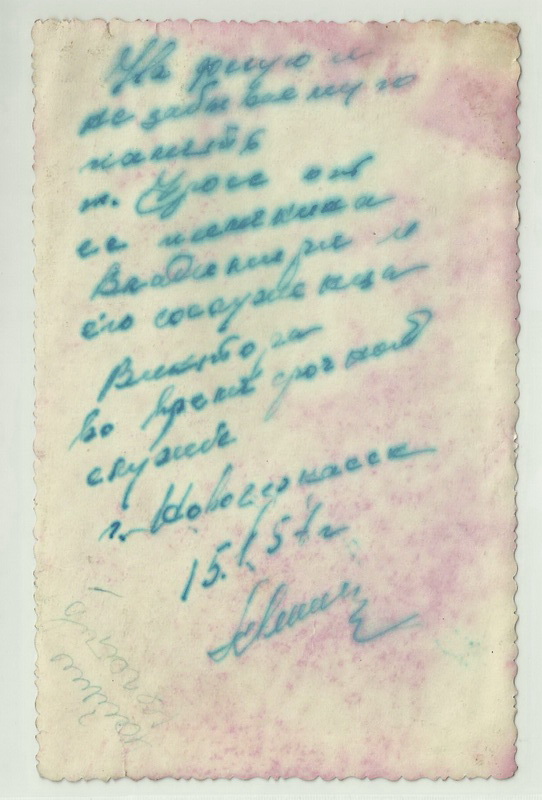 На долгую и
незабываемую
память
т. Урсе от
ее племянника
Владимира и
его сослуживца
Виктора
во время срочной
службы
г. Новочеркасск
15. 1 5 г